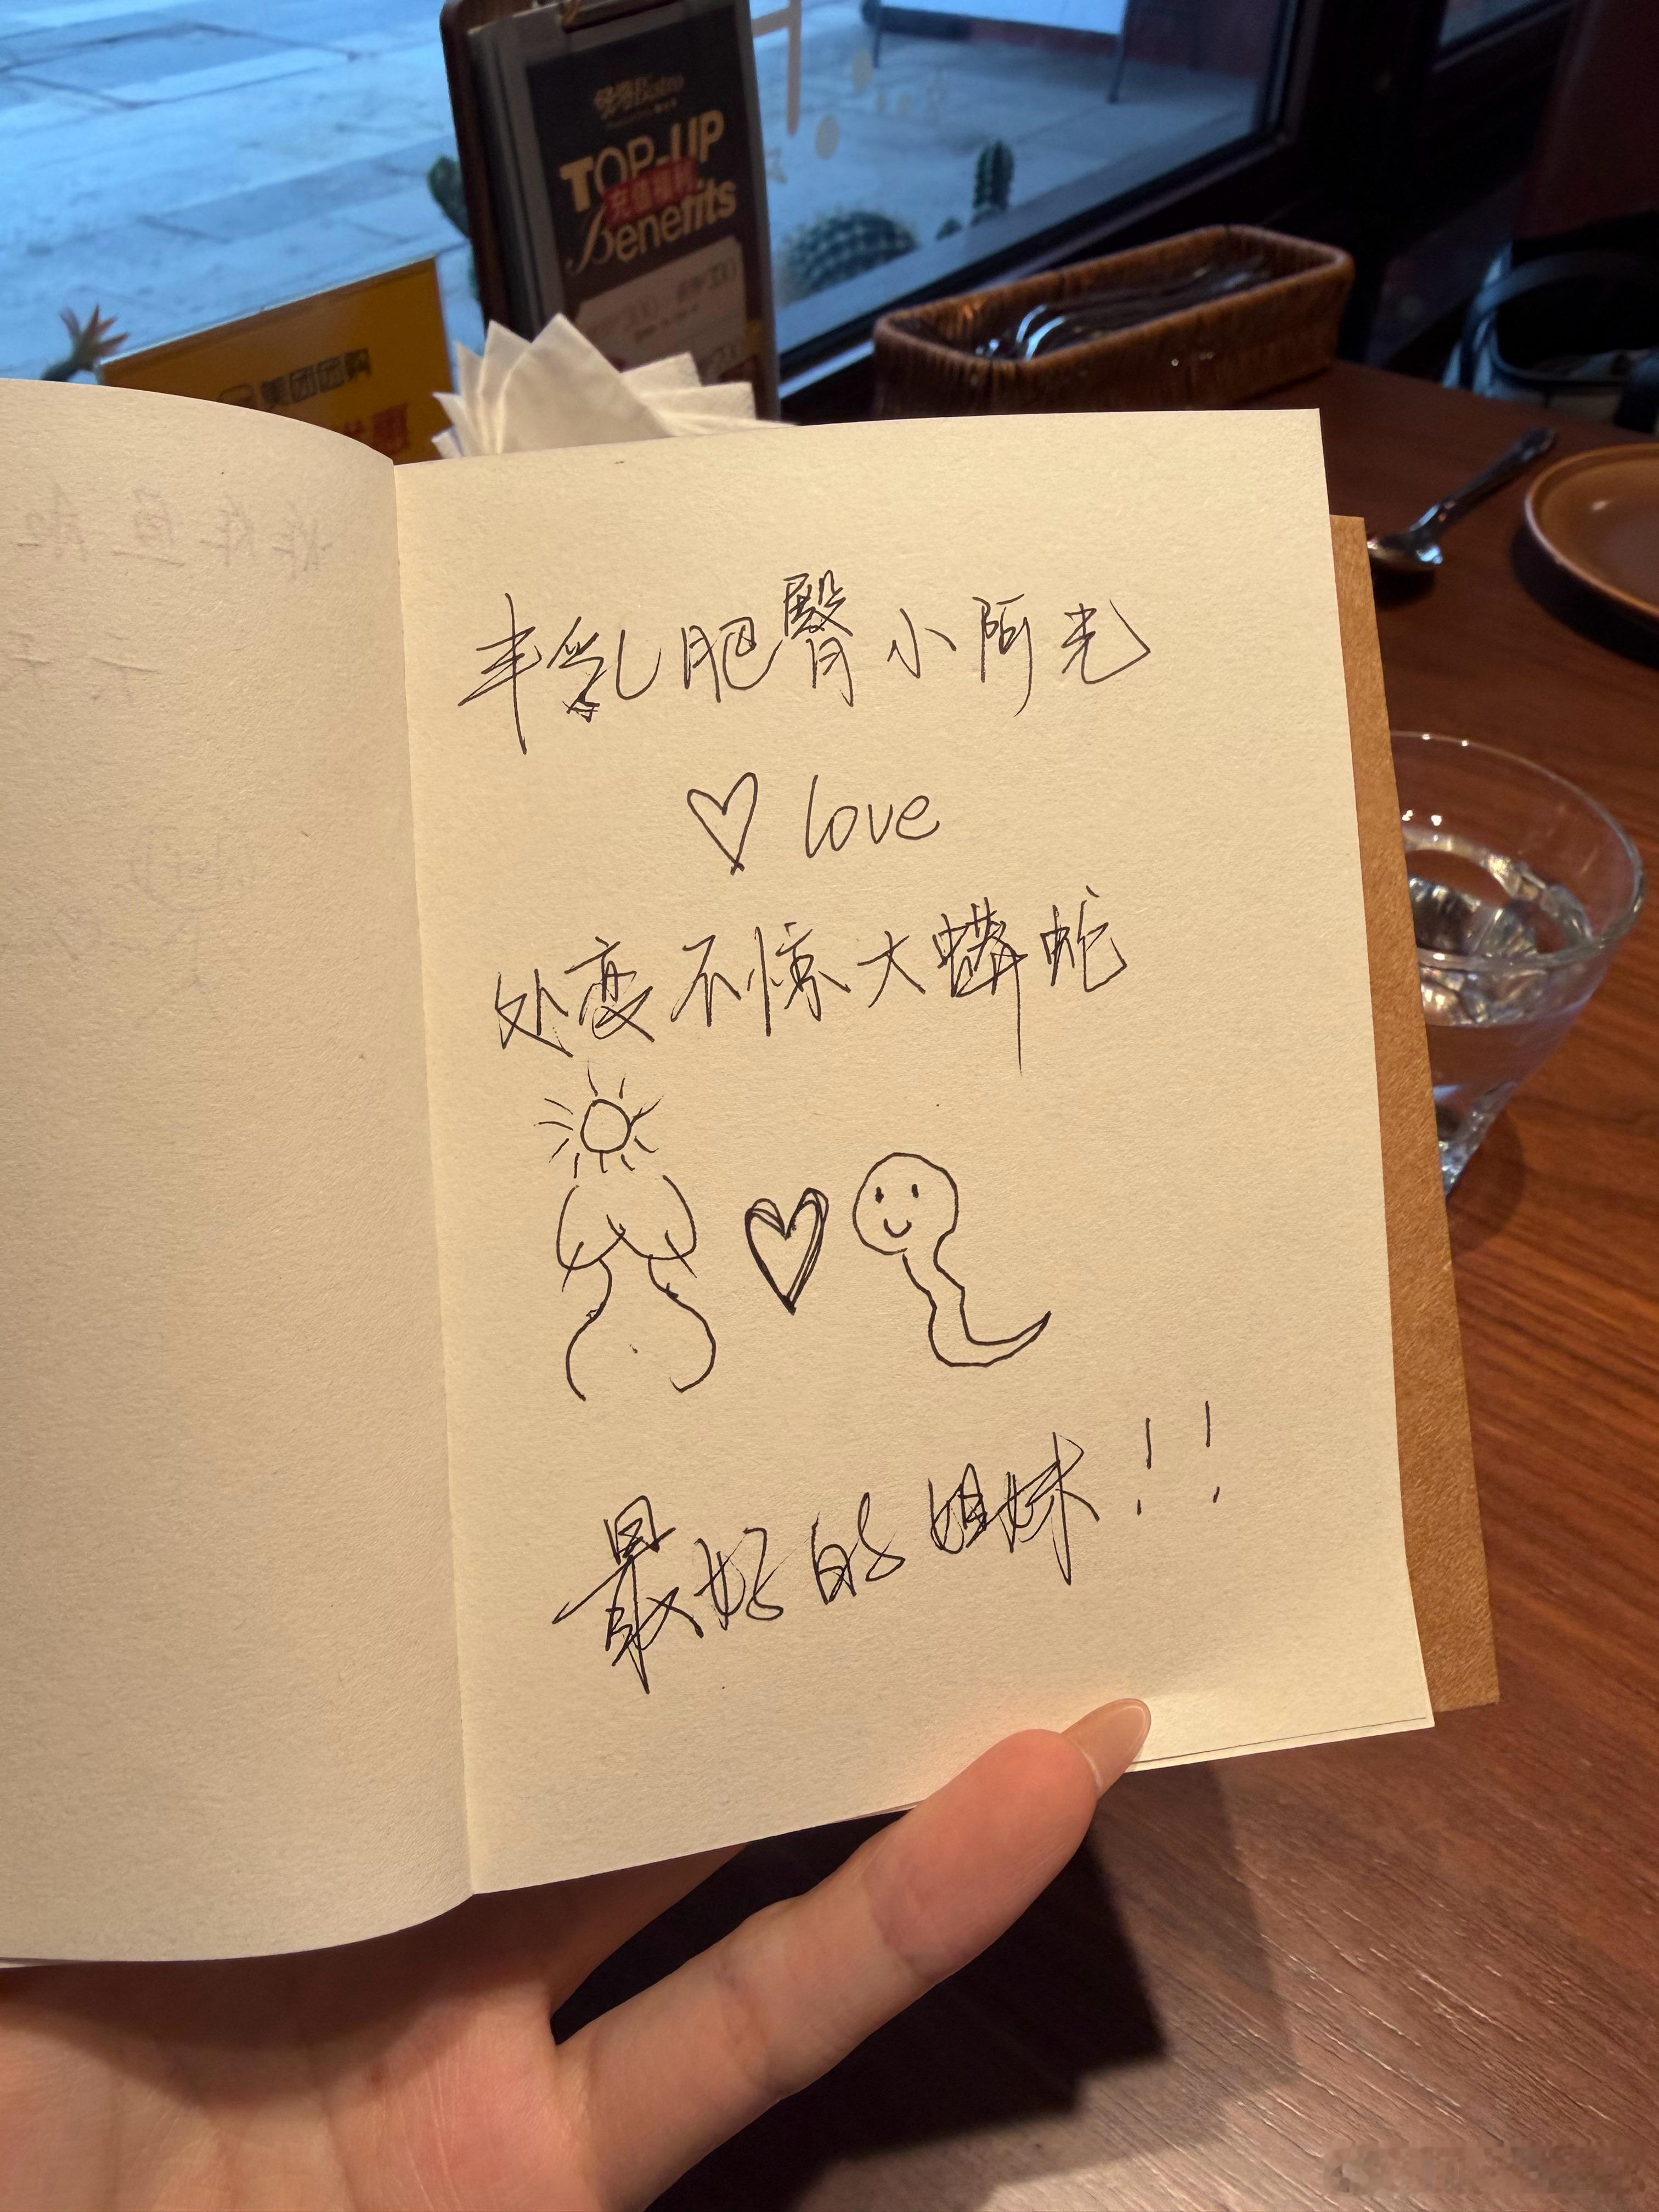 TOP-UP
充值福利
Benefits
美团团购
丰乳肥臀小阿光
love
处变不惊大蟒蛇
最好的姐妹！！